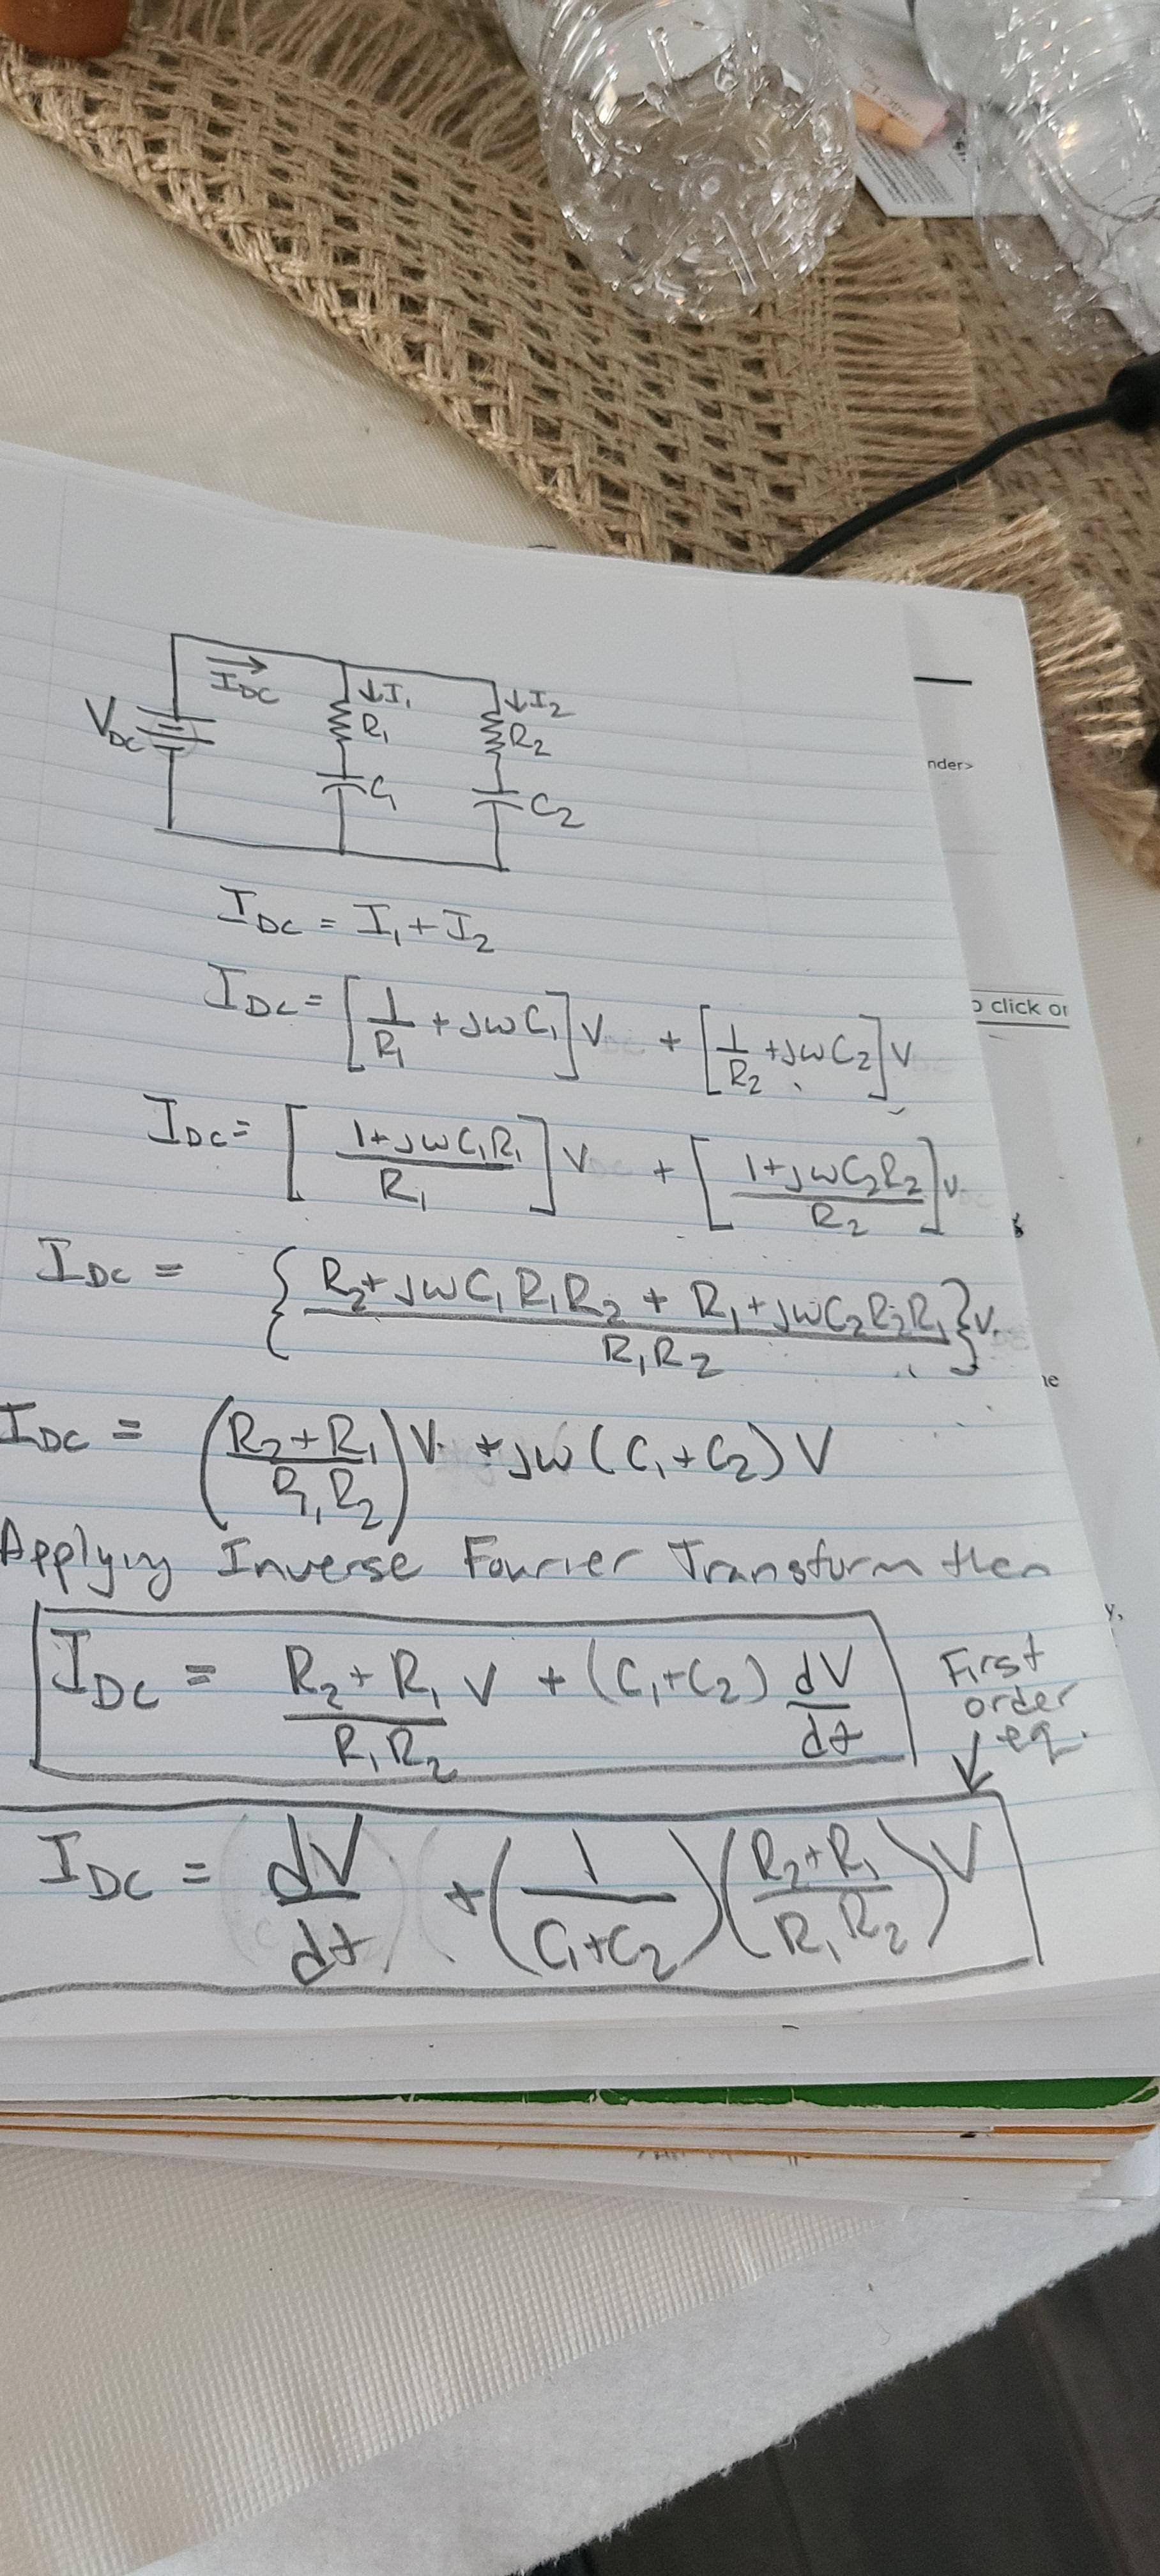 I_DC
↓I₁
↓I₂
V_DC
R₁
R₂
C₁
C₂
nder>
I_DC = I₁ + I₂
I_DC = [1/R₁ + jωC₁]V + [1/R₂ + jωC₂]V
click or
I_DC = [(1+jωC₁R₁)/R₁]V + [(1+jωC₂R₂)/R₂]V
I_DC = {(R₂+jωC₁R₁R₂ + R₁+jωC₂R₂R₁)/(R₁R₂)}V
I_DC = ((R₂+R₁)/(R₁R₂))V + jω(C₁+C₂)V
Applying Inverse Fourier Transform then
I_DC = (R₂+R₁)/(R₁R₂) V + (C₁+C₂) dV/dt
First
order
eq.
I_DC = dV/dt + (1/(C₁+C₂))((R₂+R₁)/(R₁R₂))V